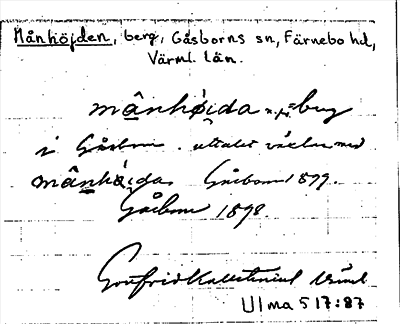 Månhöjden, berg, Gåsborns sn, Färnebo hd,
Värml. län.
månhöida n.pr. berg
i Gåsborn. uttalet växlar med
månhöida. Gåsborn 1899.
Gåsborn 1898.
Gottfrid Kallstenius Värml
Ulma 517:87